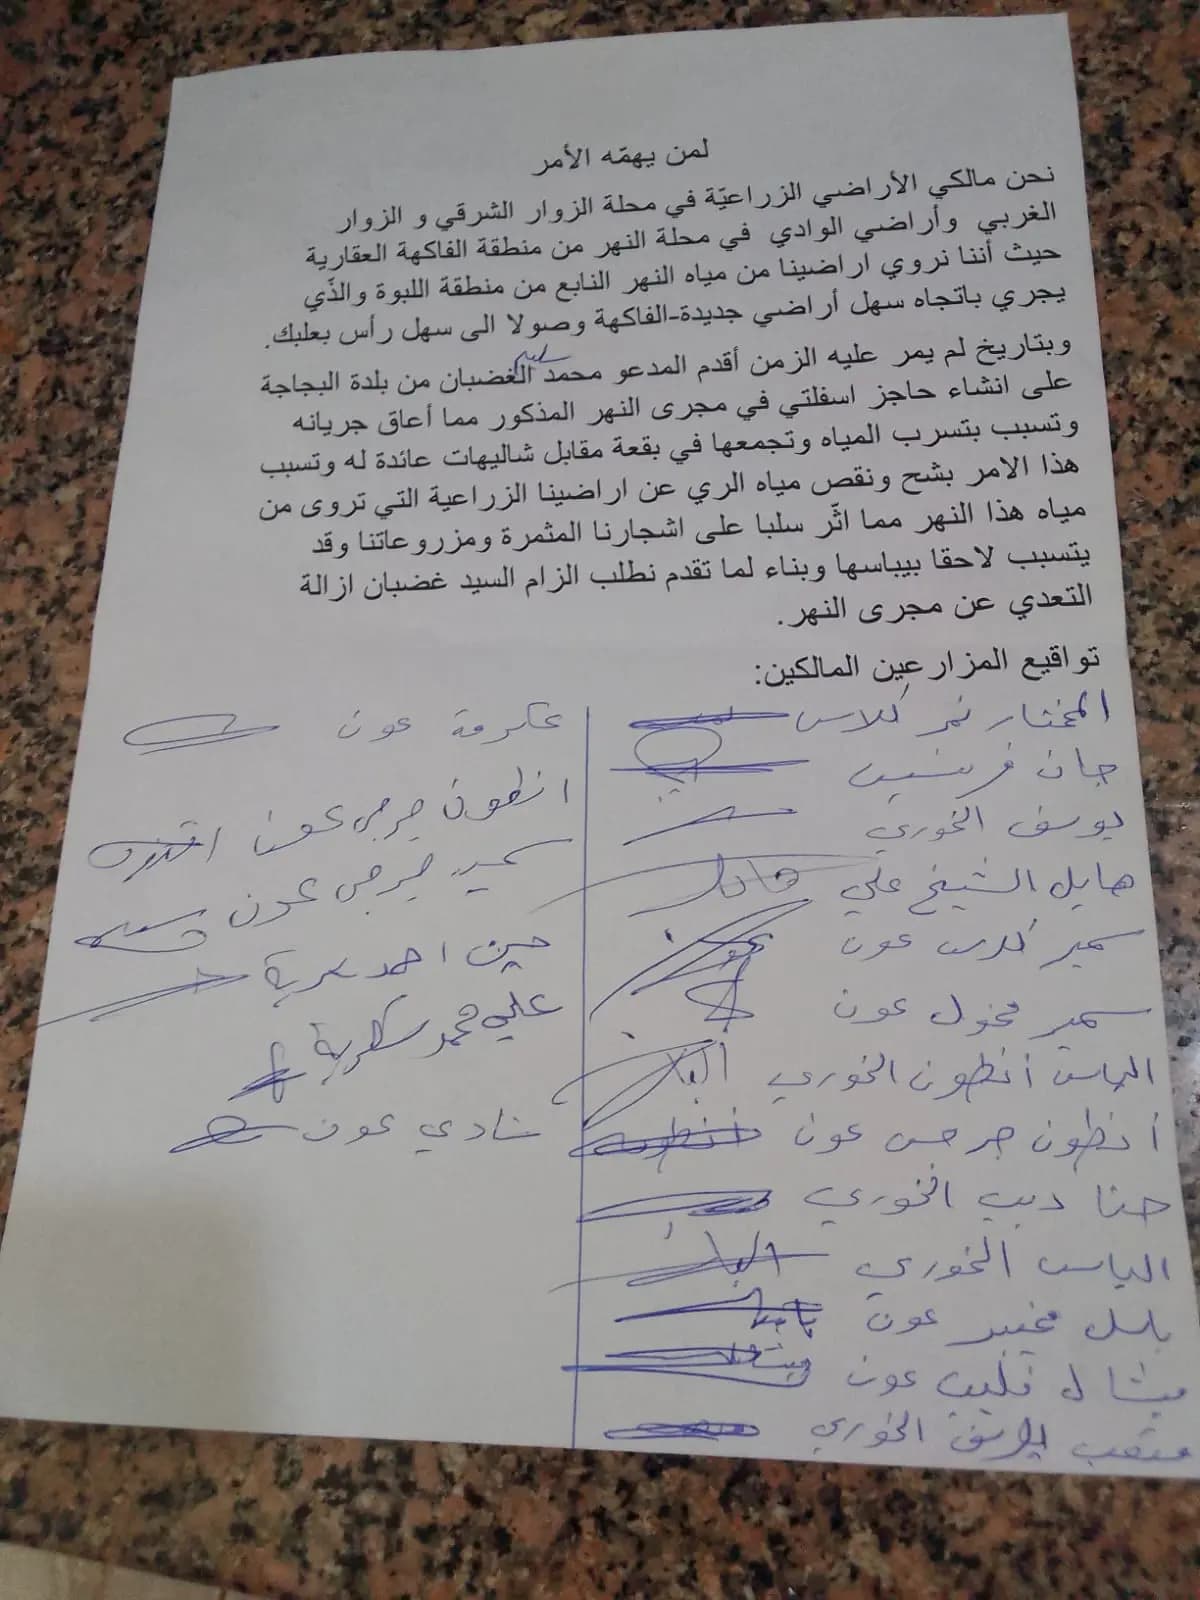 لمن يهمّه الأمر
نحن مالكي الأراضي الزراعيّة في محلة الزوار الشرقي و الزوار
الغربي وأراضي الوادي في محلة النهر من منطقة الفاكهة العقارية
حيث أننا نروي اراضينا من مياه النهر النابع من منطقة اللبوة والذّي
يجري باتجاه سهل أراضي جديدة-الفاكهة وصولا الى سهل رأس بعلبك.
وبتاريخ لم يمر عليه الزمن أقدم المدعو محمد سليم الغضبان من بلدة البجاجة
على انشاء حاجز اسفلتي في مجرى النهر المذكور مما أعاق جريانه
وتسبب بتسرب المياه وتجمعها في بقعة مقابل شاليهات عائدة له وتسبب
هذا الامر بشح ونقص مياه الري عن اراضينا الزراعية التي تروى من
مياه هذا النهر مما اثّر سلبا على اشجارنا المثمرة ومزروعاتنا وقد
يتسبب لاحقا بيباسها وبناء لما تقدم نطلب الزام السيد غضبان ازالة
التعدي عن مجرى النهر.
تواقيع المزارعين المالكين:
المختار نمر كلاس
جان فرنسيس
يوسف الخوري
هايل الشيخ علي
سمير كلاس عون
سمير مخول عون
الياس أنطون الخوري
أنطون جرجس عون
حنا ديب الخوري
الياس الخوري
عون
ميشال فليب عون
متعب الخوري
عكرمة عون
انطون جرجس عون
سمير جرجس عون
حسين احمد سكرية
علي محمد سكرية
شادي عون